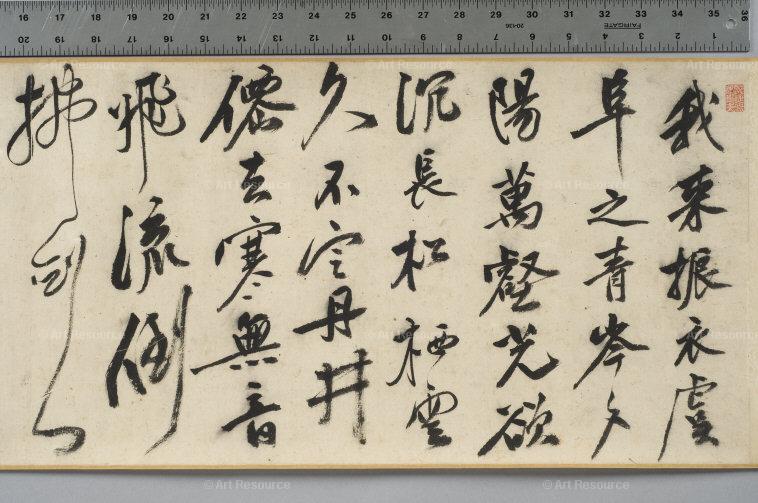 16 17 18 19 20 21 22 23 24 25 26 27 28 29 30 31 32 33 34 35 36
20 19 18 17 16 15 14 13 12 11 10 9 8 7 6 5 4 3 2 1
FAIRGATE
我來振衣虞
阜之青岑夕
陽萬壑光欲
沉長松栖雲
久不定丹井
僊去寒無音
飛流倒
拂劍
© Art Resource
© Art Resource